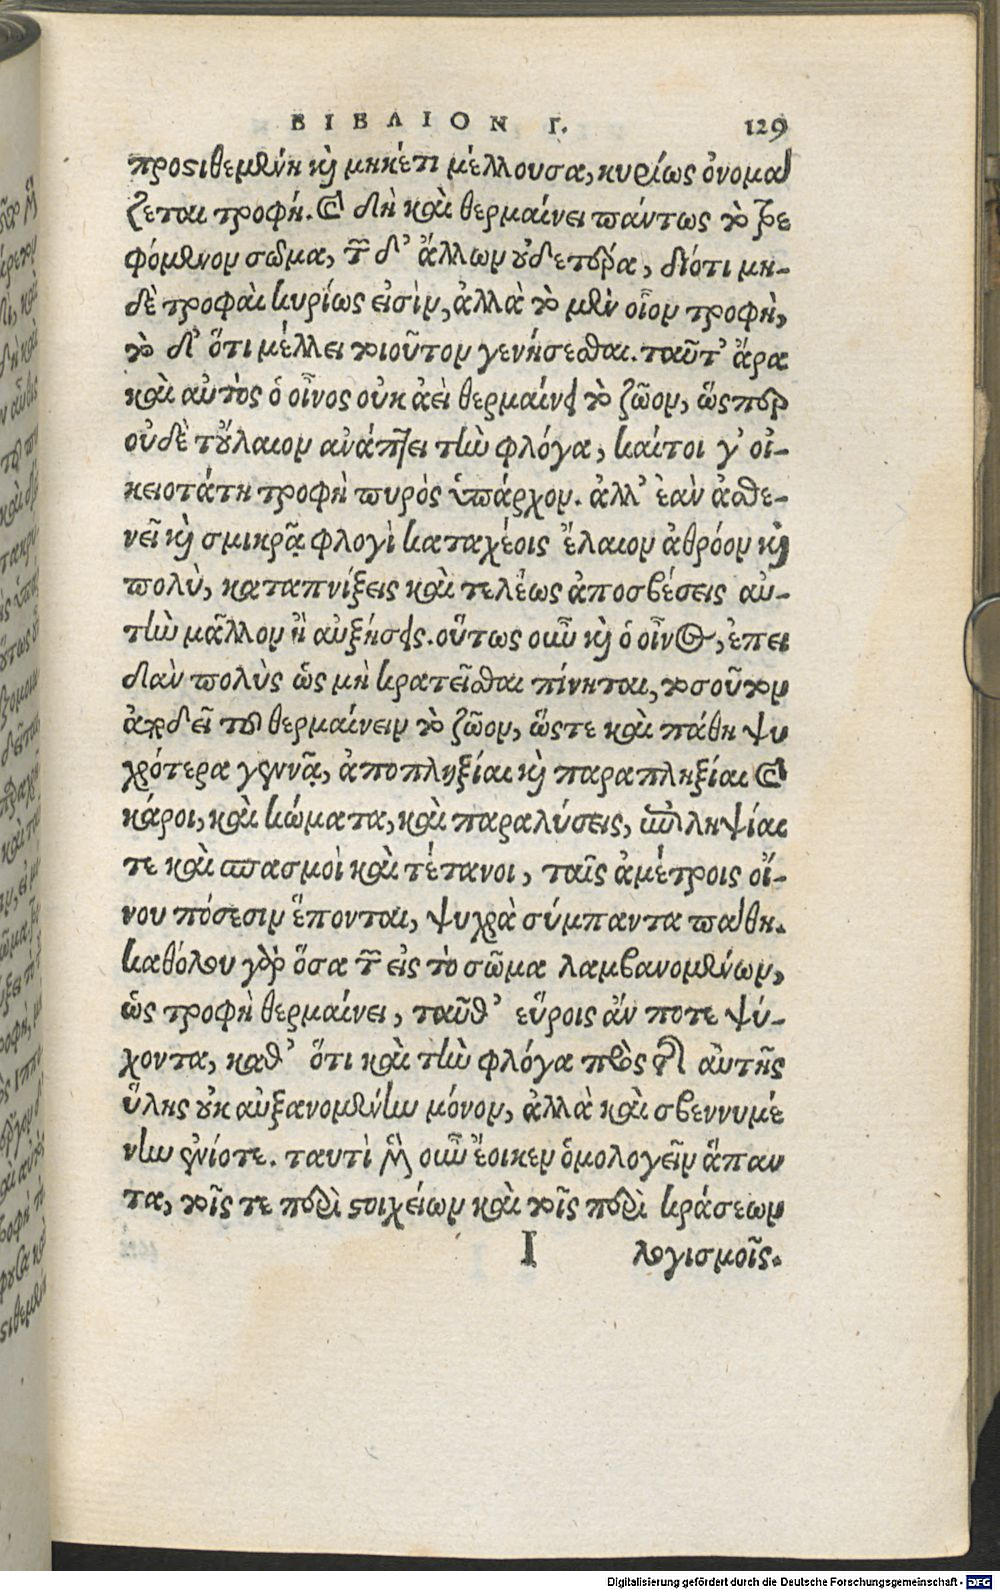 ΒΙΒΛΙΟΝ Γ. 129
προστιθεμένη καὶ μηκέτι μέλλουσα, κυρίως ὀνομά
ζεται τροφή. καὶ δὴ καὶ θερμαίνει πάντως τὸ τρε
φόμενον σῶμα, τῶν δ' ἄλλων οὐδετέρα, διότι μη-
δὲ τροφαὶ κυρίως εἰσὶν, ἀλλὰ τὸ μὲν οἷον τροφὴ,
τὸ δ' ὅτι μέλλει τοιοῦτον γενήσεσθαι. ταῦτ' ἄρα
καὶ αὐτὸς ὁ οἶνος οὐκ ἀεὶ θερμαίνει τὸ ζῶον, ὥσπερ
οὐδὲ τοὔλαιον ἀνάπτει τὴν φλόγα, καίτοι γ' οἰ-
κειοτάτη τροφὴ πυρὸς ὑπάρχον. ἀλλ' ἐὰν ἀσθε-
νεῖ καὶ σμικρᾷ φλογὶ καταχέοις ἔλαιον ἀθρόον καὶ
πολὺ, καταπνίξεις καὶ τελέως ἀποσβέσεις αὐ-
τὴν μᾶλλον ἢ αὐξήσεις. οὕτως οὖν καὶ ὁ οἶνος, ἐπει
δὰν πολὺς ὡς μὴ κρατεῖσθαι πίνηται, τοσοῦτον
ἀποδεῖ τοῦ θερμαίνειν τὸ ζῶον, ὥστε καὶ πάθη ψυ
χρότερα γεννᾷ, ἀποπληξίαι καὶ παραπληξίαι καὶ
κάροι, καὶ κώματα, καὶ παραλύσεις, ἐπιληψίαι
τε καὶ σπασμοὶ καὶ τέτανοι, ταῖς ἀμέτροις οἴ-
νου πόσεσιν ἕπονται, ψυχρὰ σύμπαντα πάθη.
καθόλου γὰρ ὅσα τῶν εἰς τὸ σῶμα λαμβανομένων,
ὡς τροφὴ θερμαίνει, ταῦθ' εὕροις ἄν ποτε ψύ-
χοντα, καθ' ὅτι καὶ τὴν φλόγα πρὸς τῆς αὐτῆς
ὕλης οὐκ αὐξανομένην μόνον, ἀλλὰ καὶ σβεννυμέ
νην ἐνίοτε. ταυτὶ μὲν οὖν ἔοικεν ὁμολογεῖν ἅπαν
τα, τοῖς τε περὶ στοιχείων καὶ τοῖς περὶ κράσεων
I λογισμοῖς.
Digitalisierung gefördert durch die Deutsche Forschungsgemeinschaft - DFG